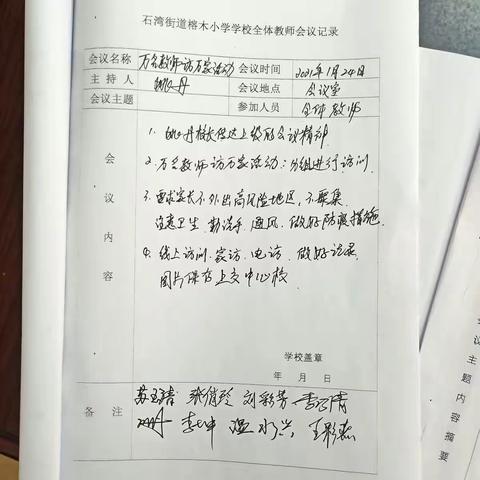 石湾街道榕木小学学校全体教师会议记录
会议名称 万名教师访万家活动 会议时间 2021年1月24日
主持人 会议地点 会议室
会议主题 参加人员 全体教师
会议内容
1. 校长传达上级的会议精神
2. 万名教师访万家活动：分组进行访问
3. 要求家长不外出高风险地区，不聚集
注意卫生，勤洗手，通风，做好防疫措施
4. 线上访问、家访、电访，做好记录
图片保存上交中心校
学校盖章
年 月 日
备注
刘彩芳
主题内容摘要